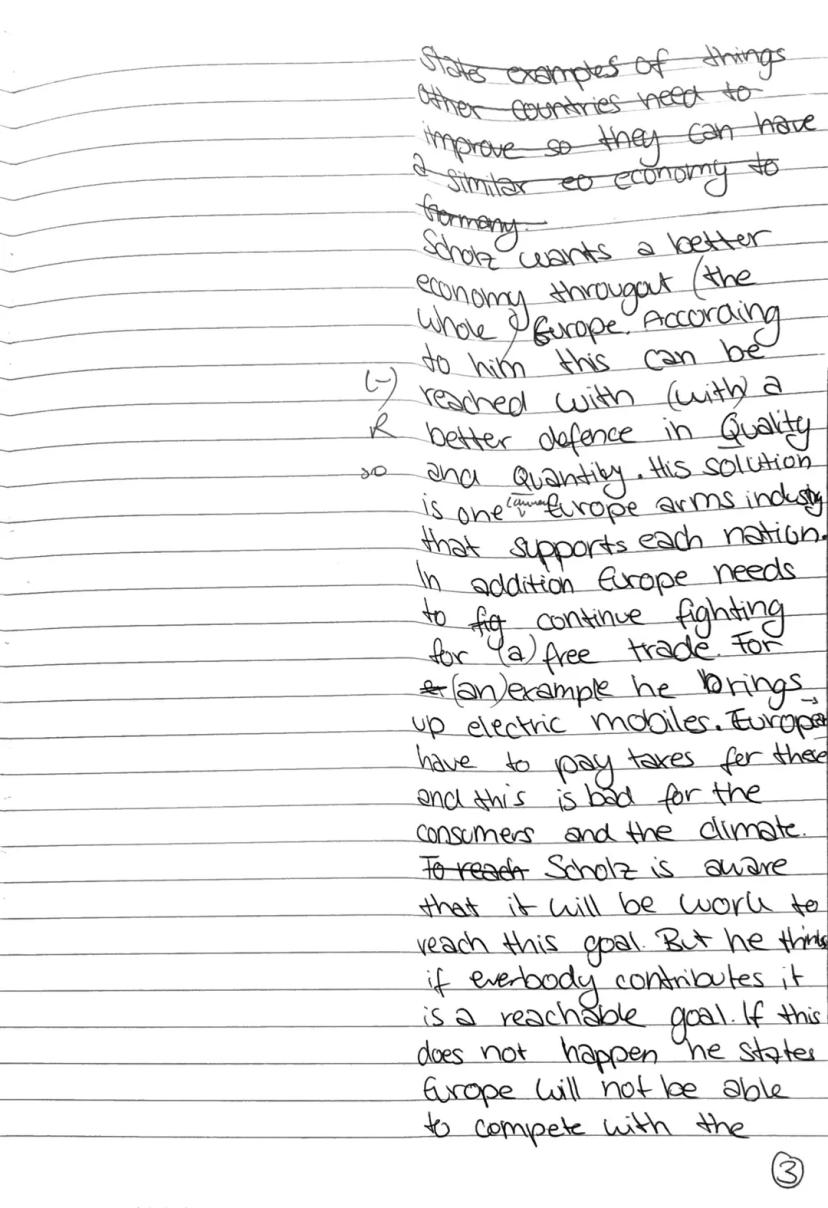 States examples of things
other countries need to
improve so they can have
a similar eo economy to
Germany.
Scholz wants a better
economy througout (the
whole) Europe. According
to him this can be
(-) reached with (with) a
R better defence in Quality
and Quantity. His solution
is one Europe arms industry
that supports each nation.
In addition Europe needs
to fig continue fighting
for (a) free trade. For
(an) example he brings
up electric mobiles. Europe
have to pay taxes for these
and this is bad for the
consumers and the climate.
To reach Scholz is aware
that it will be work to
reach this goal. But he thinks
if everbody contributes it
is a reachable goal. If this
does not happen he states
Europe will not be able
to compete with the
3